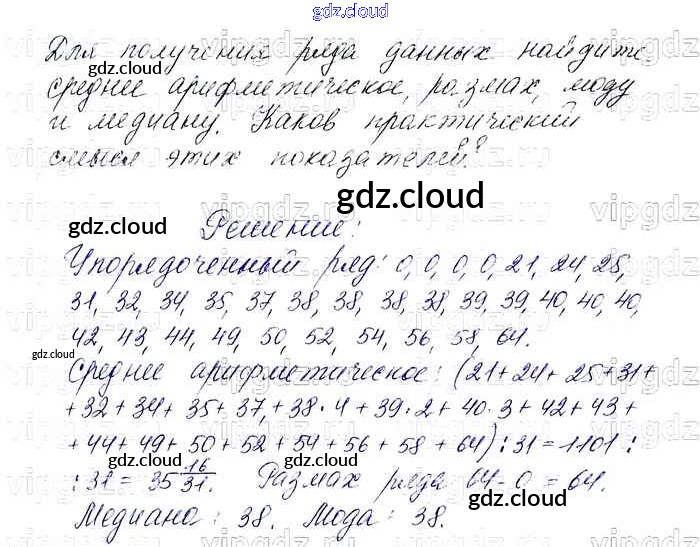 gdz.cloud
Для получения ряда данных найдите
gdz.cloud
среднее арифметическое, размах, моду
и медиану. Каков практический
смысл этих показателей?
gdz.cloud
gdz.cloud
Решение:
Упорядоченный ряд: 0, 0, 0, 0, 21, 24, 25,
31, 32, 34, 35, 37, 38, 38, 38, 38, 39, 39, 40, 40, 40,
42, 43, 44, 49, 50, 52, 54, 56, 58, 64.
gdz.cloud
Среднее арифметическое: (21+24+25+31+
+32+34+35+37,+38·4+39·2+40·3+42+43+
+44+49+50+52+54+56+58+64):31=1101:
:31=35 16/31. Размах ряда 64-0=64.
gdz.cloud
gdz.cloud
Медиана: 38. Мода: 38.
gdz.cloud